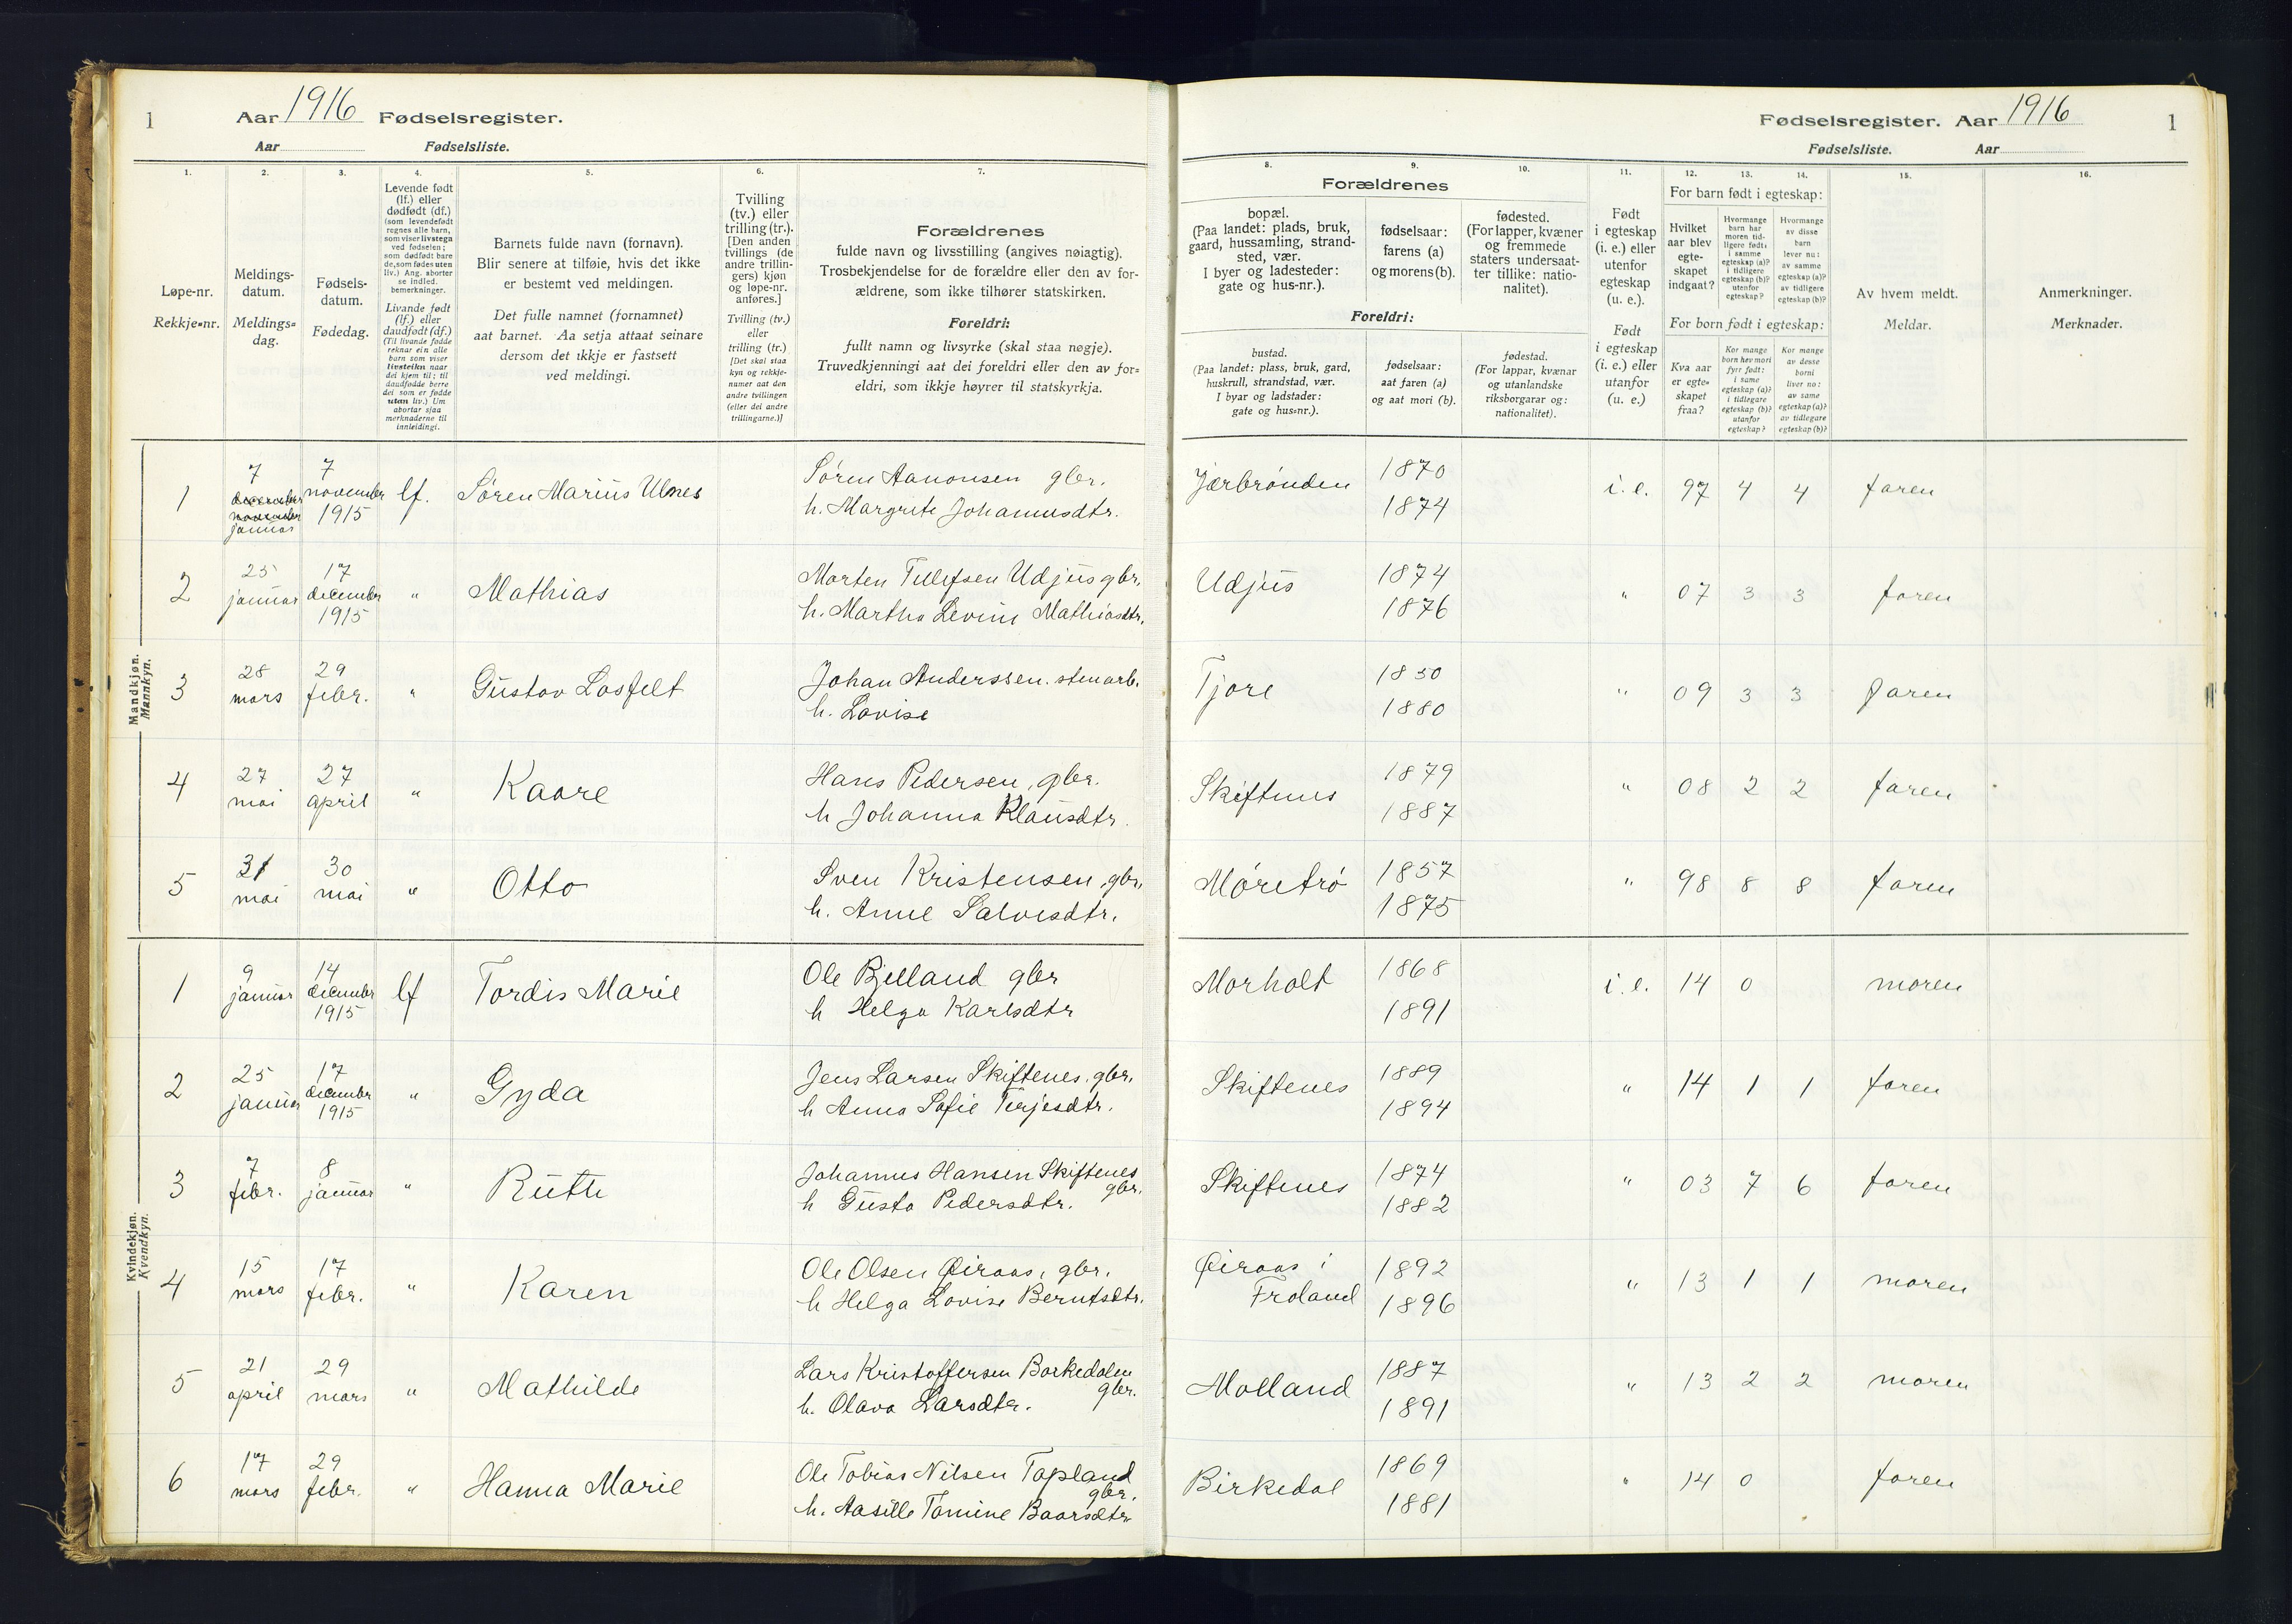 1
Aar 1916 Fødselsregister.
Aar Fødselsliste.
1.
Løpe-nr.
Rekkje-nr.
2.
Meldings-
datum.
Meldings-
dag.
3.
Fødsels-
datum.
Fødedag.
4.
Levende født
(lf.) eller
dødfødt (df.)
(som levendefødt
regnes alle barn,
som viser livstegn
ved fødselen;
som dødfødt bare
de, som fødes uten
liv.) Ang. aborter
se indled.
bemerkninger.
Livande født
(lf.) eller
daudfødt (df.)
(Til livande fødde
reknar ein alle
barn som viser
livsteikn naar
dei kjem til; til
daudfødde berre
dei som er fødde
utan liv.) Um
abortar sjaa
merknaderne til
innleidingi.
5.
Barnets fulde navn (fornavn).
Blir senere at tilføie, hvis det ikke
er bestemt ved meldingen.
Det fulle namnet (fornamnet)
aat barnet. Aa setja attaat seinare
dersom det ikkje er fastsett
ved meldingi.
6.
Tvilling
(tv.) eller
trilling (tr.).
[Den anden
tvillings (de
andre trillin-
gers) kjøn
og løpe-nr.
anføres.]
Tvilling (tv.)
eller
trilling (tr.)
[Det skal staa
kyn og rekkje-
numer aat den
andre tvillingen
(eller dei andre
trillingarne.)]
7.
Forældrenes
fulde navn og livsstilling (angives nøiagtig).
Trosbekjendelse for de forældre eller den av for-
ældrene, som ikke tilhører statskirken.
Foreldri:
fullt namn og livsyrke (skal staa nøgje).
Truvedkjenningi aat dei foreldri eller den av for-
eldri, som ikkje høyrer til statskyrkja.
Mandkjøn.
Mannkyn.
1 7 januar 7 november 1915 lf. Søren Marius Ulnes Søren Aanonsen gbr.
h. Margrete Johannesdtr.
2 25 januar 17 december 1915 " Mathias Morten Tellefsen Udjus gbr.
h. Martha Levine Mathiasdtr.
3 28 mars 29 febr. " Gustav Losfelt Johan Anderssen. stenarb.
h. Lovise
4 27 mai 27 april " Kaare Hans Pedersen, gbr.
h Johanna Klausdtr.
5 31 mai 30 mai " Otto Sven Kristensen, gbr.
h. Anne Salvesdtr.
Kvindekjøn.
Kvendkyn.
1 9 januar 14 december 1915 lf Tordis Marie Ole Bjelland gbr
h Helga Karlsdtr
2 25 januar 17 december 1915 " Gyda Jens Larsen Skiftenes, gbr.
h Anna Sofie Terjesdtr.
3 7 febr. 8 januar " Ruth Johannes Hansen Skiftenes gbr.
h Gusta Pedersdtr.
4 15 mars 17 febr. " Karen Ole Olsen Øiraas, gbr.
h Helga Lovise Berntsdtr.
5 21 april 29 mars " Mathilde Lars Kristoffersen Borkedalen gbr.
h. Olava Larsdtr.
6 17 mars 29 febr. " Hanna Marie Ole Tobias Nilsen Topland gbr.
h. Aasille Tomine Baarsdtr.
Fødselsregister. Aar 1916 1
Fødselsliste. Aar
8. 9. 10.
Forældrenes
bopæl.
(Paa landet: plads, bruk,
gaard, hussamling, strand-
sted, vær.
I byer og ladesteder:
gate og hus-nr.).
fødselsaar:
farens (a)
og morens (b).
fødested.
(For lapper, kvæner
og fremmede
staters undersaat-
ter tillike: natio-
nalitet).
Foreldri:
bustad.
(Paa landet: plass, bruk, gard,
huskrull, strandstad, vær.
I byar og ladstader:
gate og hus-nr.).
fødselsaar:
aat faren (a)
og aat mori (b).
fødestad.
(For lappar, kvænar
og utanlandske
riksborgarar og:
nationalitet).
11.
Født
i egteskap
(i. e.) eller
utenfor
egteskap
(u. e.).
Født
i egteskap
(i. e.) eller
utanfor
(u. e.)
12. 13. 14.
For barn født i egteskap:
Hvilket
aar blev
egte-
skapet
indgaat?
Hvormange
barn har
moren tid-
ligere født:
i samme
egteskap (a)?
i tidligere
egteskap (b)?
utenfor
egteskap?
Hvormange
av disse
barn
lever nu:
av samme
egteskap (a)?
av tidligere
egteskap (b)?
For born født i egteskap:
Kva aar
er egte-
skapet
fraa?
Kor mange
born hev mori
fyrr født:
i same
egteskap (a)?
i tidlegare
egteskap (b)?
utanfor
egteskap?
Kor mange
av desse
borni
liver no:
av same
egteskap (a)?
av tidlegare
egteskap (b)?
15.
Av hvem meldt.
Meldar.
16.
Anmerkninger.
Merknader.
Jærbrønden 1870 1874 i. e. 97 4 4 faren
Udjus 1874 1876 " 07 3 3 faren
Tjore 1850 1880 " 09 3 3 faren
Skiftenes 1879 1887 " 08 2 2 faren
Møretrø 1857 1875 " 98 8 8 faren
Morholt 1868 1891 i. e. 14 0 moren
Skiftenes 1889 1894 " 14 1 1 faren
Skiftenes 1874 1882 " 03 7 6 faren
Øiraas i Froland 1892 1896 " 13 1 1 moren
Molland 1887 1891 " 13 2 2 moren
Birkedal 1869 1881 " 14 0 faren